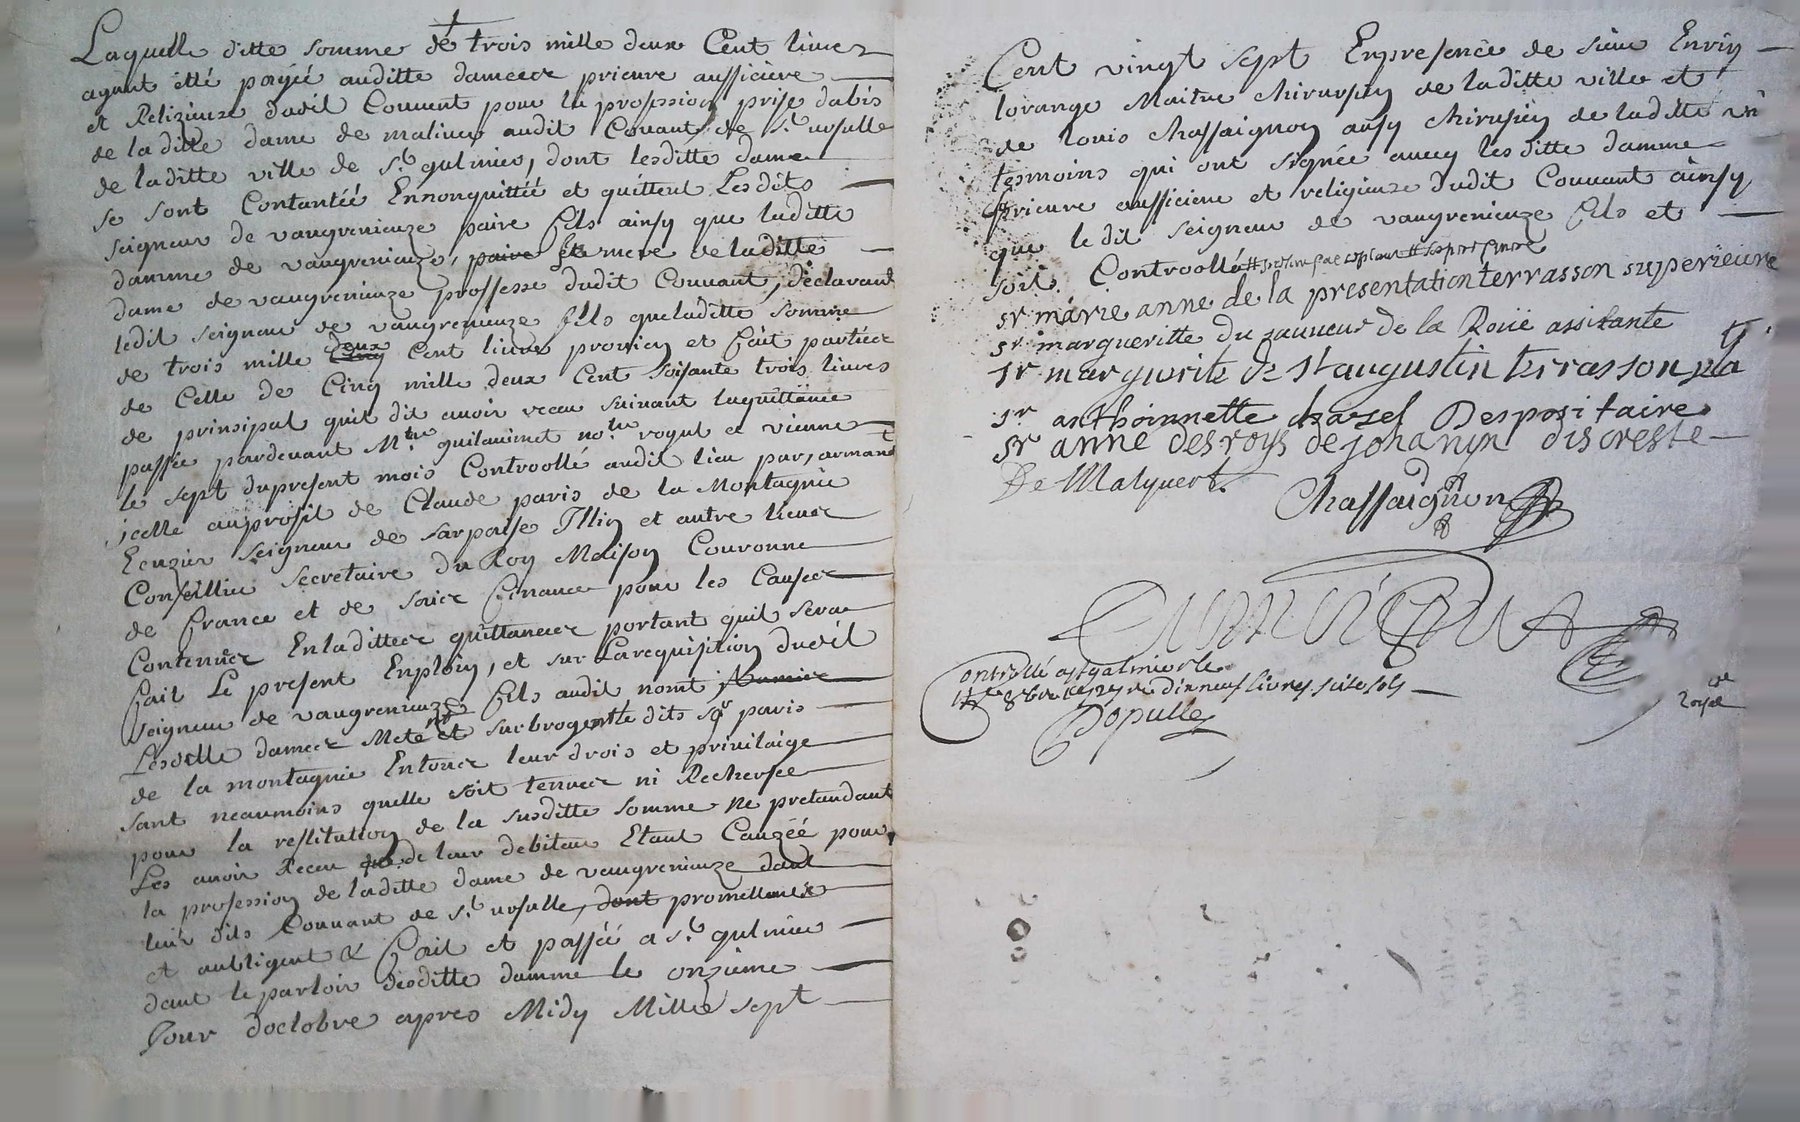 Laquelle ditte somme de trois mille deux Cent livres
ayant etté payéé auditte dames prieure aufficière
et Religieuze dudit Couvent pour la profession prise dabis
de laditte dame de malivers audit Couvant de St ursulle
de laditte ville de St galmier, dont lesditte dame
se sont Contantéé Ennonquittéé et quittent Lesdits
seigneur de vaugrenieuze paire fils ainsy que laditte
damme de vaugrenieuze, paire et mere de laditte
dame de vaugrenieuze proffesse dudit Couvant, declarant
ledit seigneur de vaugrenieuze fils que laditte somme
de trois mille Cinq deux Cent livres provien et fait partiées
de Celle de Cinq mille deux Cent soisante trois livres
de prinsipal quil dit avoir receu suivant laquittance
passée pardevant Mtre guilaimet notre royal a vienne
le sept dupresent mois Controollé audit lieu par, armant
jcelle auprofit de Claude paris de la Montagnie
Ecuzier seigneur de sarpaise Illin et autre lieux
Conseillier secretaire du Roy Maison Couronne
de france et de sosier finance pour les Causes
Contenues Enladittes quittances portant quil sera
fait Le present Enploity, et sur Larequisition dudit
seigneur de vaugrenieuze fils audit nom,
Lesditte dames Mete et surbrogentle dits sgr paris
de la montagnie Entous leur drois et privilaige
sant neaumoins quelle soit tenues ni Rechersée
pour la restitution de la susditte somme ne pretandant
Les avoir Receu de leur debiteur Etant Cauzéé pour
la profession de laditte dame de vaugrenieuze dant
leur dits Couvant de St ursulle, dont promettant
et aubligent & fait et passéé a St galmier
dant le parloir desditte damme le onzieme
Jour doctobre apres Midy Mille sept
Cent vingt sept Enpresence de sieur Enriy
lorange Maitre Chirurgien de laditte ville et
de louis Chassaignon ausy Chirugien de laditte vi
tesmoins qui ont signée avecq lesditte damme
prieure aufficiere et religieuze dudit Couvant ainsy
que ledit seigneur de vaugrenieuze fils et
soit Controollé
sr marie anne de la presentation terrasson superieure
sr margueritte du sauveur de la Roüe assistante
sr marguerite de st augustin terrasson
sr anthoinnette chazel Despositaire
sr anne desroys de johanyn discreste
De Malyvert.
Chassaignon
Controllé a st galmier le
8bre 1727 re dixneuf livres seise sols
Populle
Royal